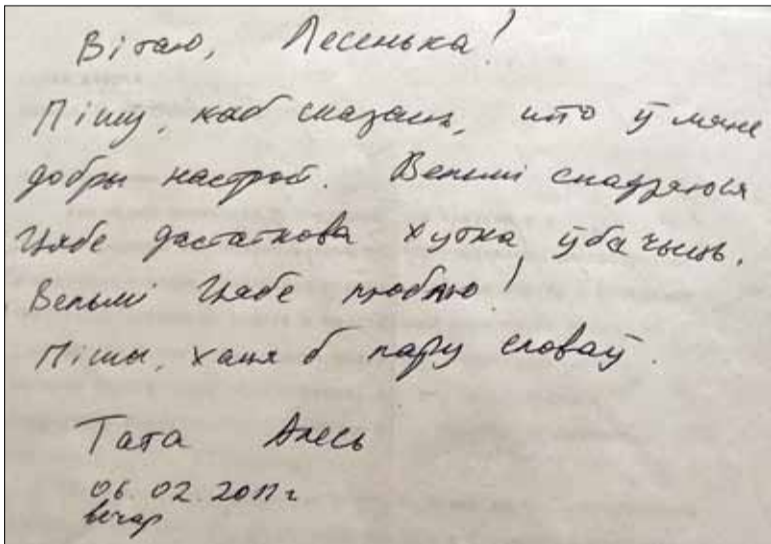 Вітаю, Лесенька!
Пішу, каб сказаць, што ў мяне
добры настрой. Вельмі спадзяюся
Цябе дастаткова хутка ўбачыць.
Вельмі Цябе люблю!
Пішы, хаця б пару словаў.
Тата Алесь
06.02.2011 г
вечар